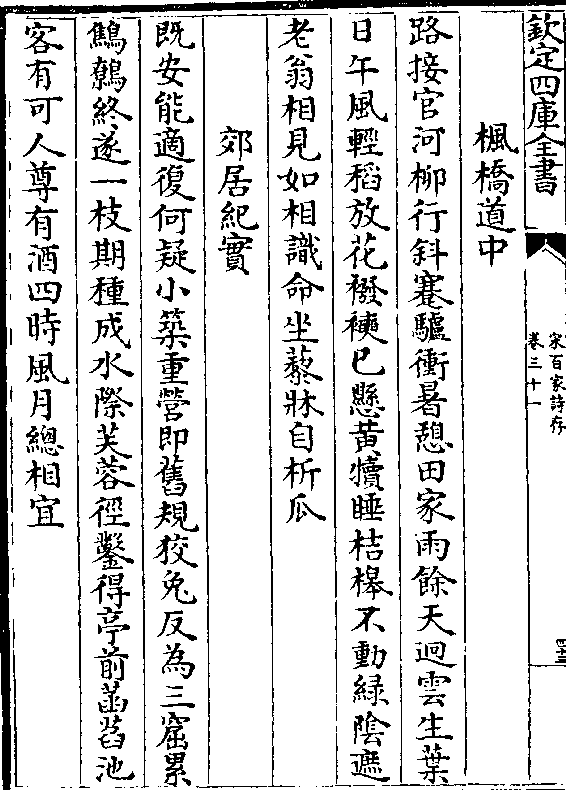 欽定四庫全書
宋百家詩存
卷三十一
楓橋道中
路接官河柳行斜蹇驢衝暑憩田家雨餘天迥雲生葉
日午風輕稻放花襏襫已懸黄犢睡桔槹不動緑陰遮
老翁相見如相識命坐藜牀自析瓜
郊居紀實
既安能適復何疑小築重營即舊規狡兔反為三窟累
鷦鷯終遂一枝期種成水際芙蓉徑鑿得亭前菡萏池
客有可人尊有酒四時風月總相宜